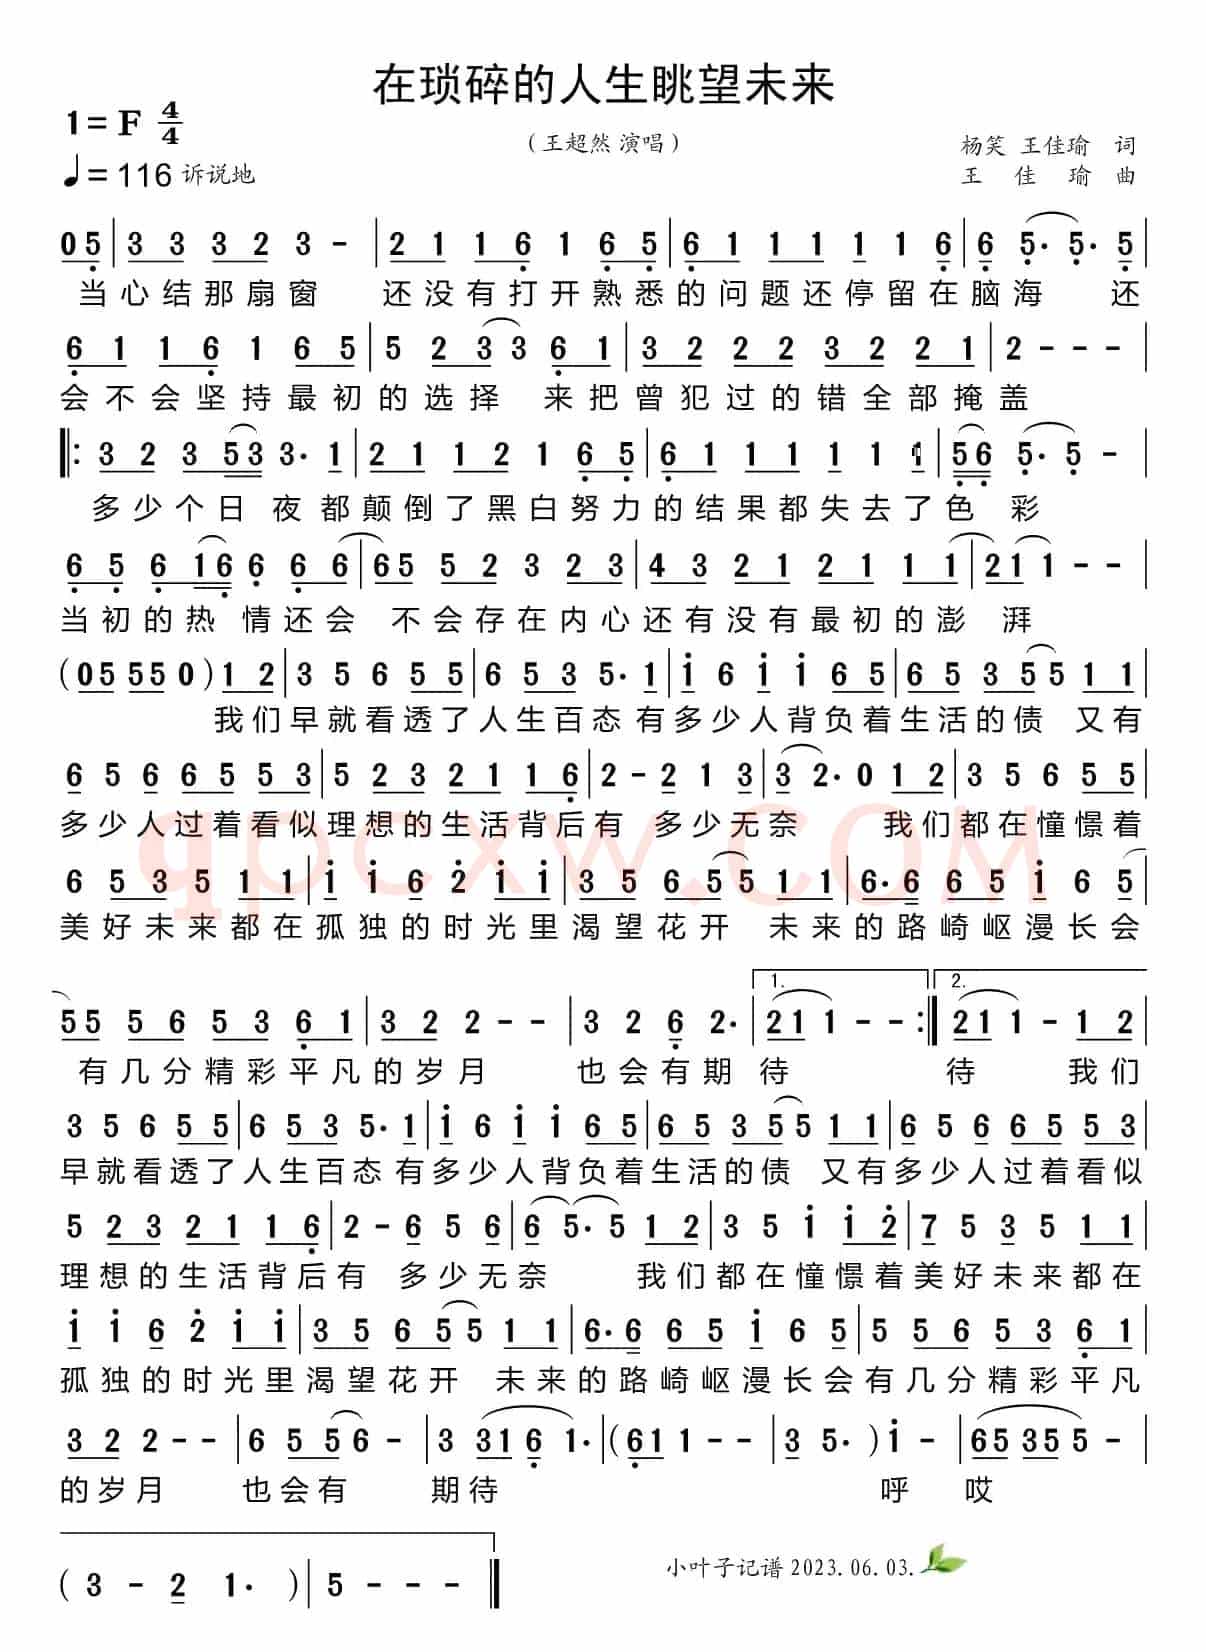 在琐碎的人生眺望未来
1=F 4/4
（王超然 演唱）
杨笑 王佳瑜 词
♩=116 诉说地
王佳瑜 曲
05|33 32 3 -|21 16 1 65|61 11 1 1 6|6 5· 5· 5|
当心结那扇窗 还没有打开熟悉的问题还停留在脑海 还
61 16 1 65|5 23 3 61|32 22 32 21|2 - - -|
会不会坚持最初的选择 来把曾犯过的错全部掩盖
‖:32 353 3· 1|21 12 1 65|61 11 1 1|56 5· 5 -|
多少个日夜都颠倒了黑白努力的结果都失去了色彩
65 616 6 66|65 52 3 23|43 21 21 11|21 1 - -|
当初的热情还会 不会存在内心还有没有最初的澎湃
(05 55 0)12|3 5 6 55|65 3 5· 1|i 6 i i 65|65 35 5 11|
我们早就看透了人生百态有多少人背负着生活的债 又有
6 5 6 65 53|5 23 21 16|2 - 2 1 3|3 2· 0 12|3 5 6 55|
多少人过着看似理想的生活背后有 多少无奈 我们都在憧憬着
6 53 5 11|i i 6 2 ii|35 65 5 11|6· 6 65 i 6 5|
美好未来都在孤独的时光里渴望花开 未来的路崎岖漫长会
55 56 53 61|32 2 - -|3 2 6 2·|21 1 - -:‖21 1 - 12|
1.
2.
有几分精彩平凡的岁月 也会有期待 待 我们
3 5 6 55|65 3 5· 1|i 6 i i 65|65 35 5 11|65 65 55 53|
早就看透了人生百态有多少人背负着生活的债 又有多少人过着看似
5 23 21 16|2 - 6 5 6|6 5· 5 12|3 5 i i2|7 53 5 11|
理想的生活背后有 多少无奈 我们都在憧憬着美好未来都在
i i 6 2 ii|35 65 5 11|6· 6 65 i 65|55 56 53 61|
孤独的时光里渴望花开 未来的路崎岖漫长会有几分精彩平凡
32 2 - -|6 5 5 6 -|3 31 6 1·|(61 1 - -|3 5· )i -|65 35 5 -|
的岁月 也会有 期待 呼 哎
(3 - 2 1· )|5 - - -‖
小叶子记谱 2023. 06. 03.
qpcxw.com